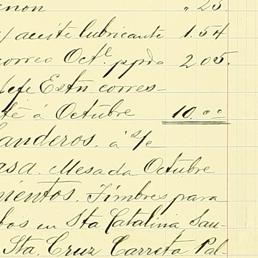 enon " 25.
y aceite lubricante 1.54
correo Octe. ppdo 2.05.
defe Estn corres-
te á Octubre 10.00
landeros. á s/e
asa. Mesada Octubre
mentos. Timbres para
bos en Sta Catalina Sau-
Sta. Cruz Carreta Pal-